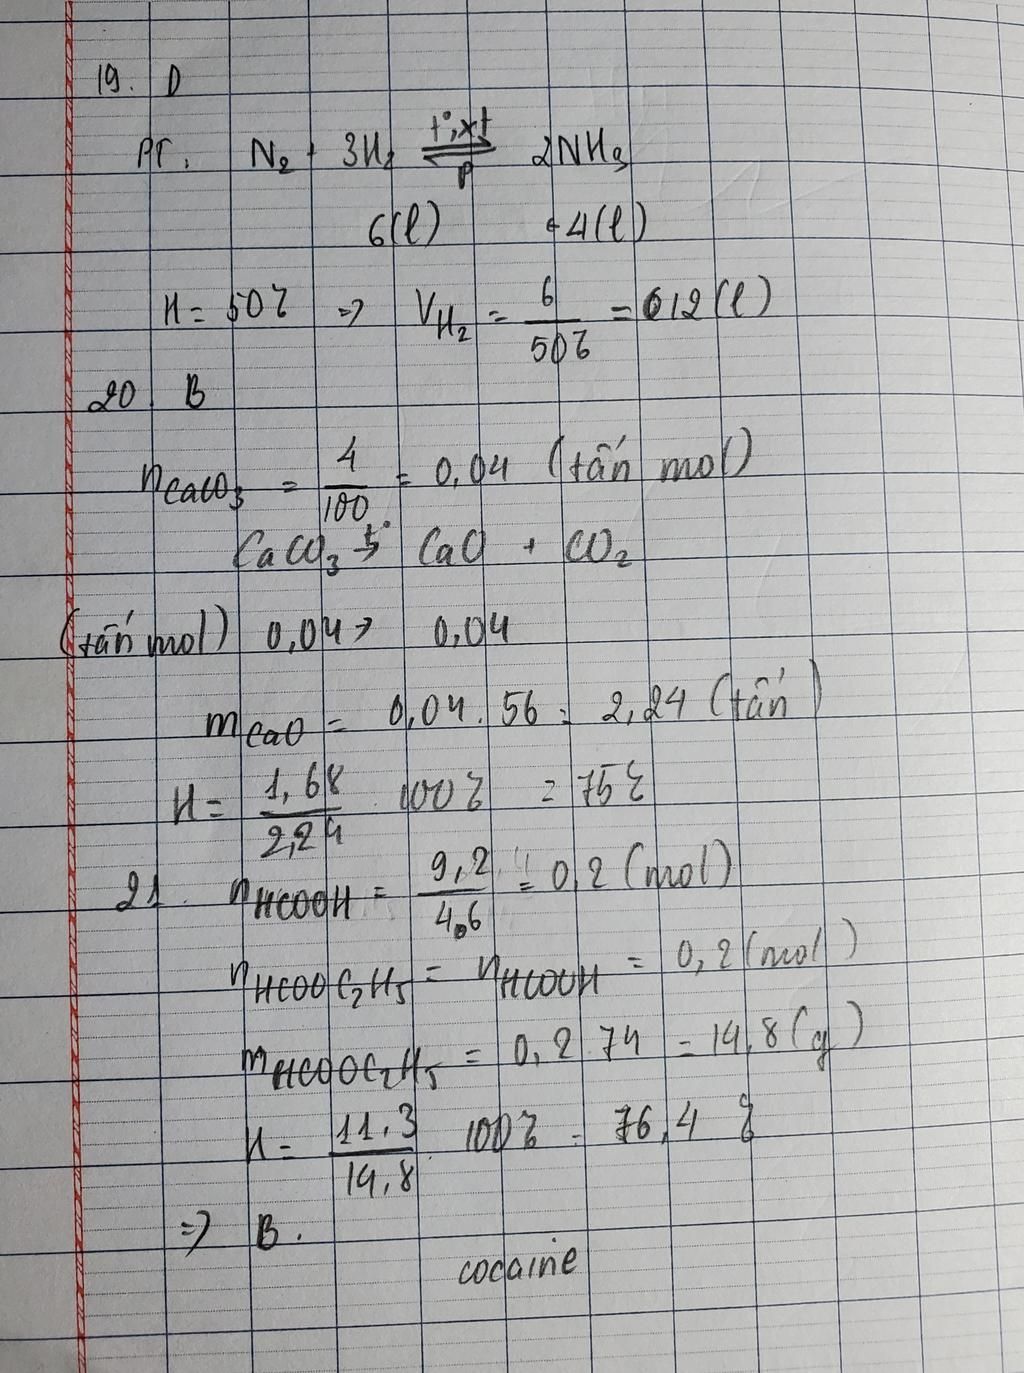 19. D
PT: N₂ + 3H₂ ⇌ 2NH₃
t°, xt
P
6(l) ← 4(l)
H = 50% => V_H₂ = 6/50% = 12(l)
20 B
n_CaCO₃ = 4/100 = 0,04 (tấn mol)
CaCO₃ →t° CaO + CO₂
(tấn mol) 0,04 → 0,04
m_CaO = 0,04 . 56 = 2,24 (tấn)
H = 1,68/2,24 . 100% = 75%
21. n_HCOOH = 9,2/46 = 0,2 (mol)
n_HCOOC₂H₅ = n_HCOOH = 0,2 (mol)
m_HCOOC₂H₅ = 0,2 . 74 = 14,8 (g)
H = 11,3/14,8 . 100% = 76,4 %
=> B.
cocaine